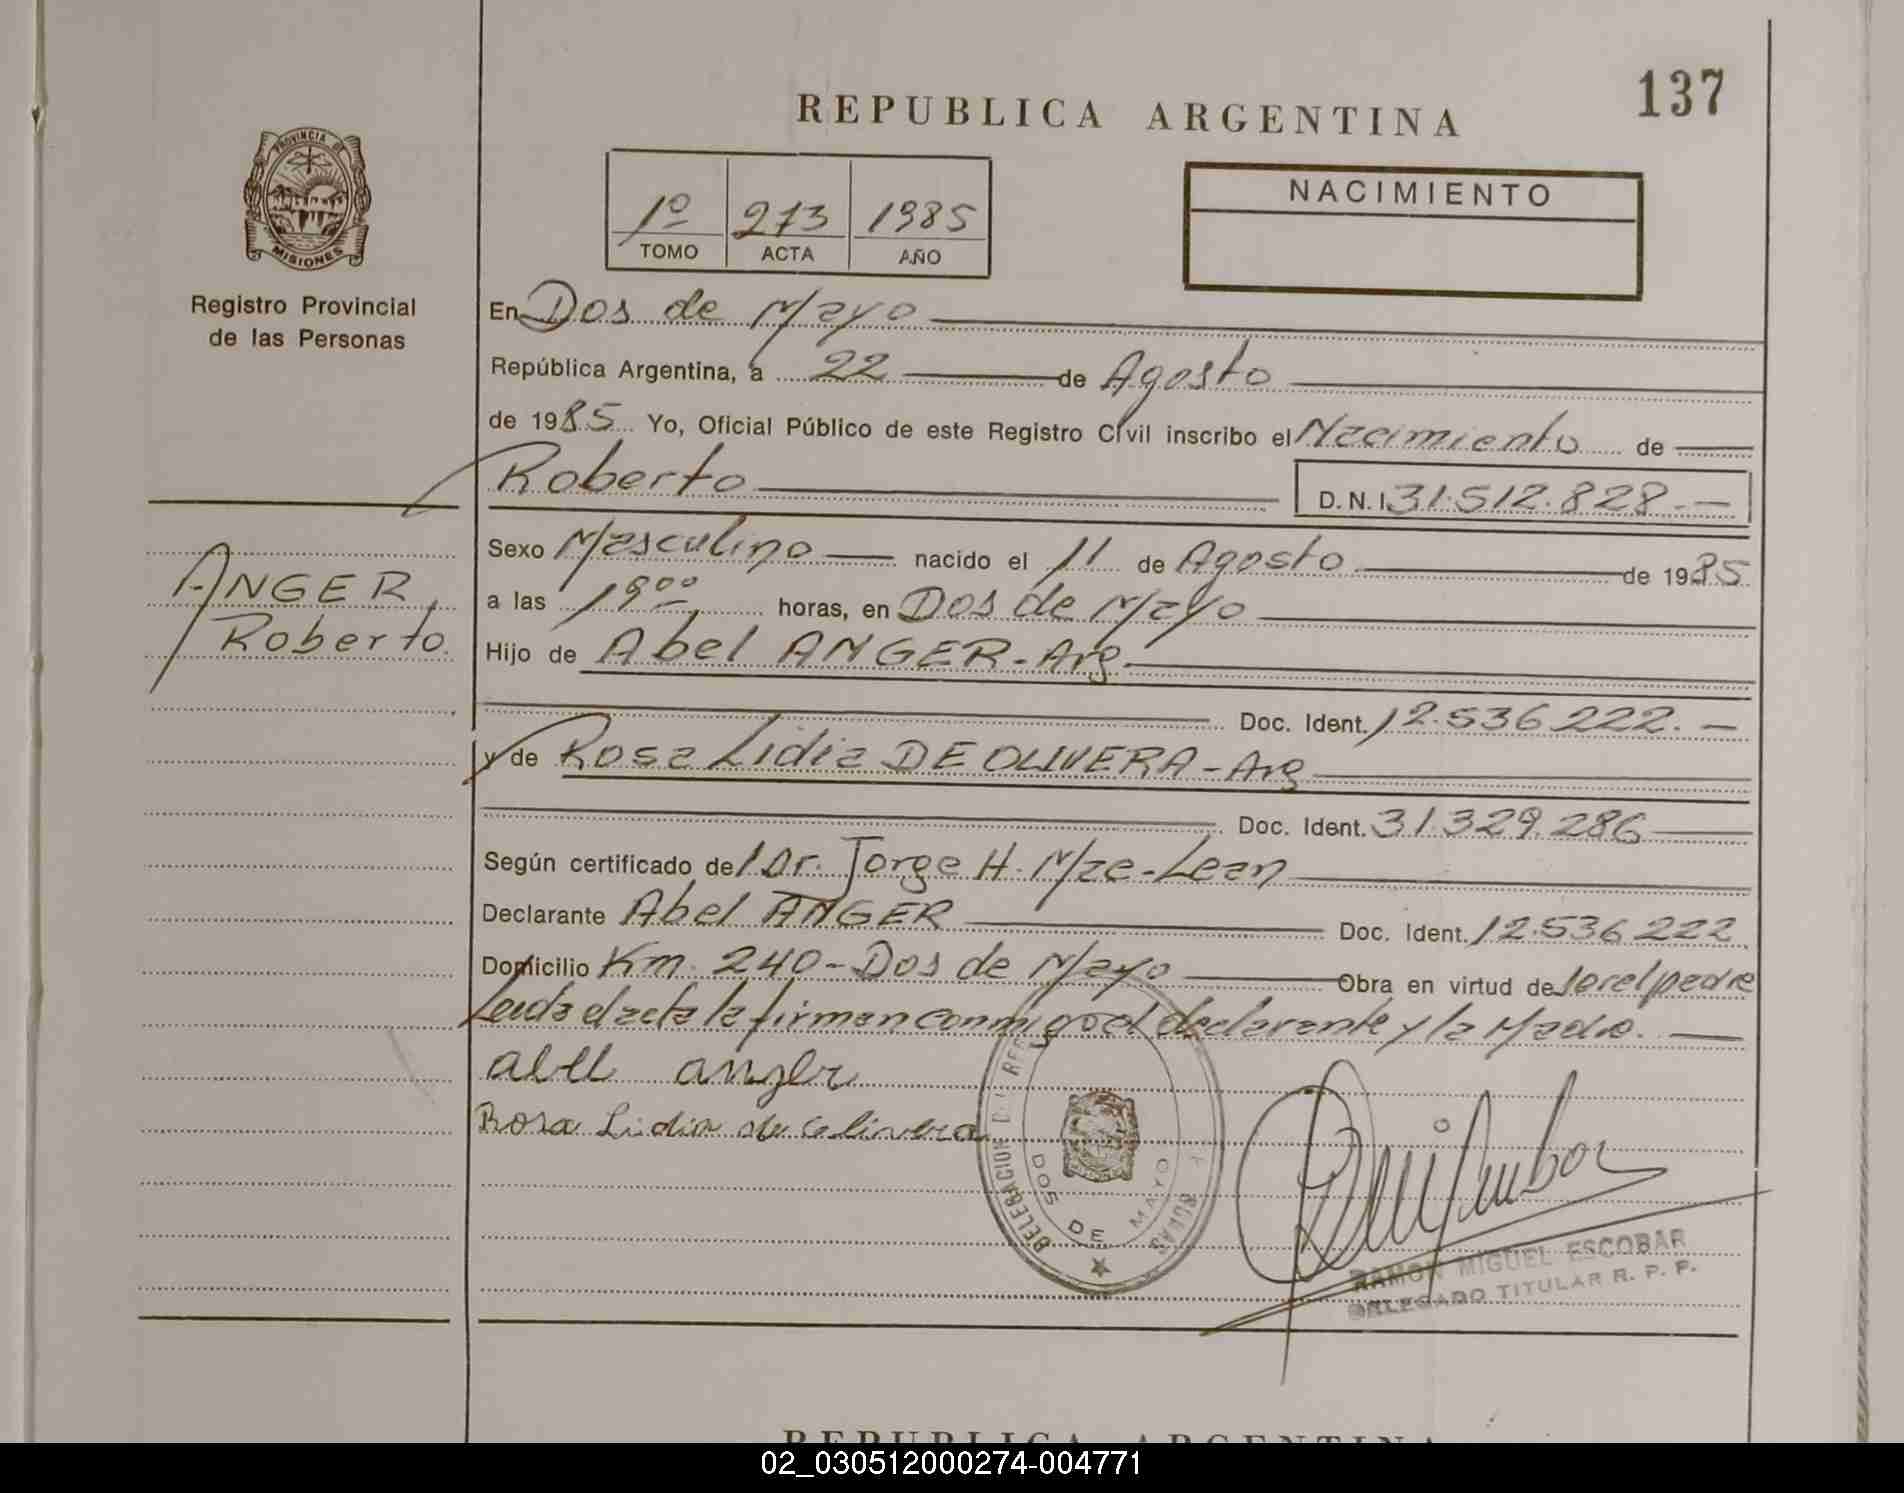 137
REPUBLICA ARGENTINA
PROVINCIA DE
MISIONES
Registro Provincial
de las Personas
1º 273 1985
TOMO ACTA AÑO
NACIMIENTO
En Dos de Mayo
República Argentina, a 22 de Agosto
de 1985 Yo, Oficial Público de este Registro Civil inscribo el Nacimiento de
Roberto D.N.I. 31.512.828.-
ANGER,
Roberto.
Sexo Masculino nacido el 11 de Agosto de 1985
a las 19ºº horas, en Dos de Mayo
Hijo de Abel ANGER-Arg.
Doc. Ident. 12.536.222.-
y de Rosa Lidia DE OLIVERA-Arg
Doc. Ident. 31.329.286
Según certificado del Dr. Jorge H. Mac-Lean
Declarante Abel ANGER Doc. Ident. 12.536.222
Domicilio Km. 240-Dos de Mayo Obra en virtud de ser el padre
Leida el acta la firman conmigo el declarante y la Madre.
abel anger
Rosa Lidia de olivera
DELEGACION DEL REG
DOS DE MAYO
RAMON MIGUEL ESCOBAR
DELEGADO TITULAR R. P. P.
REPUBLICA ARGENTINA
02_030512000274-004771